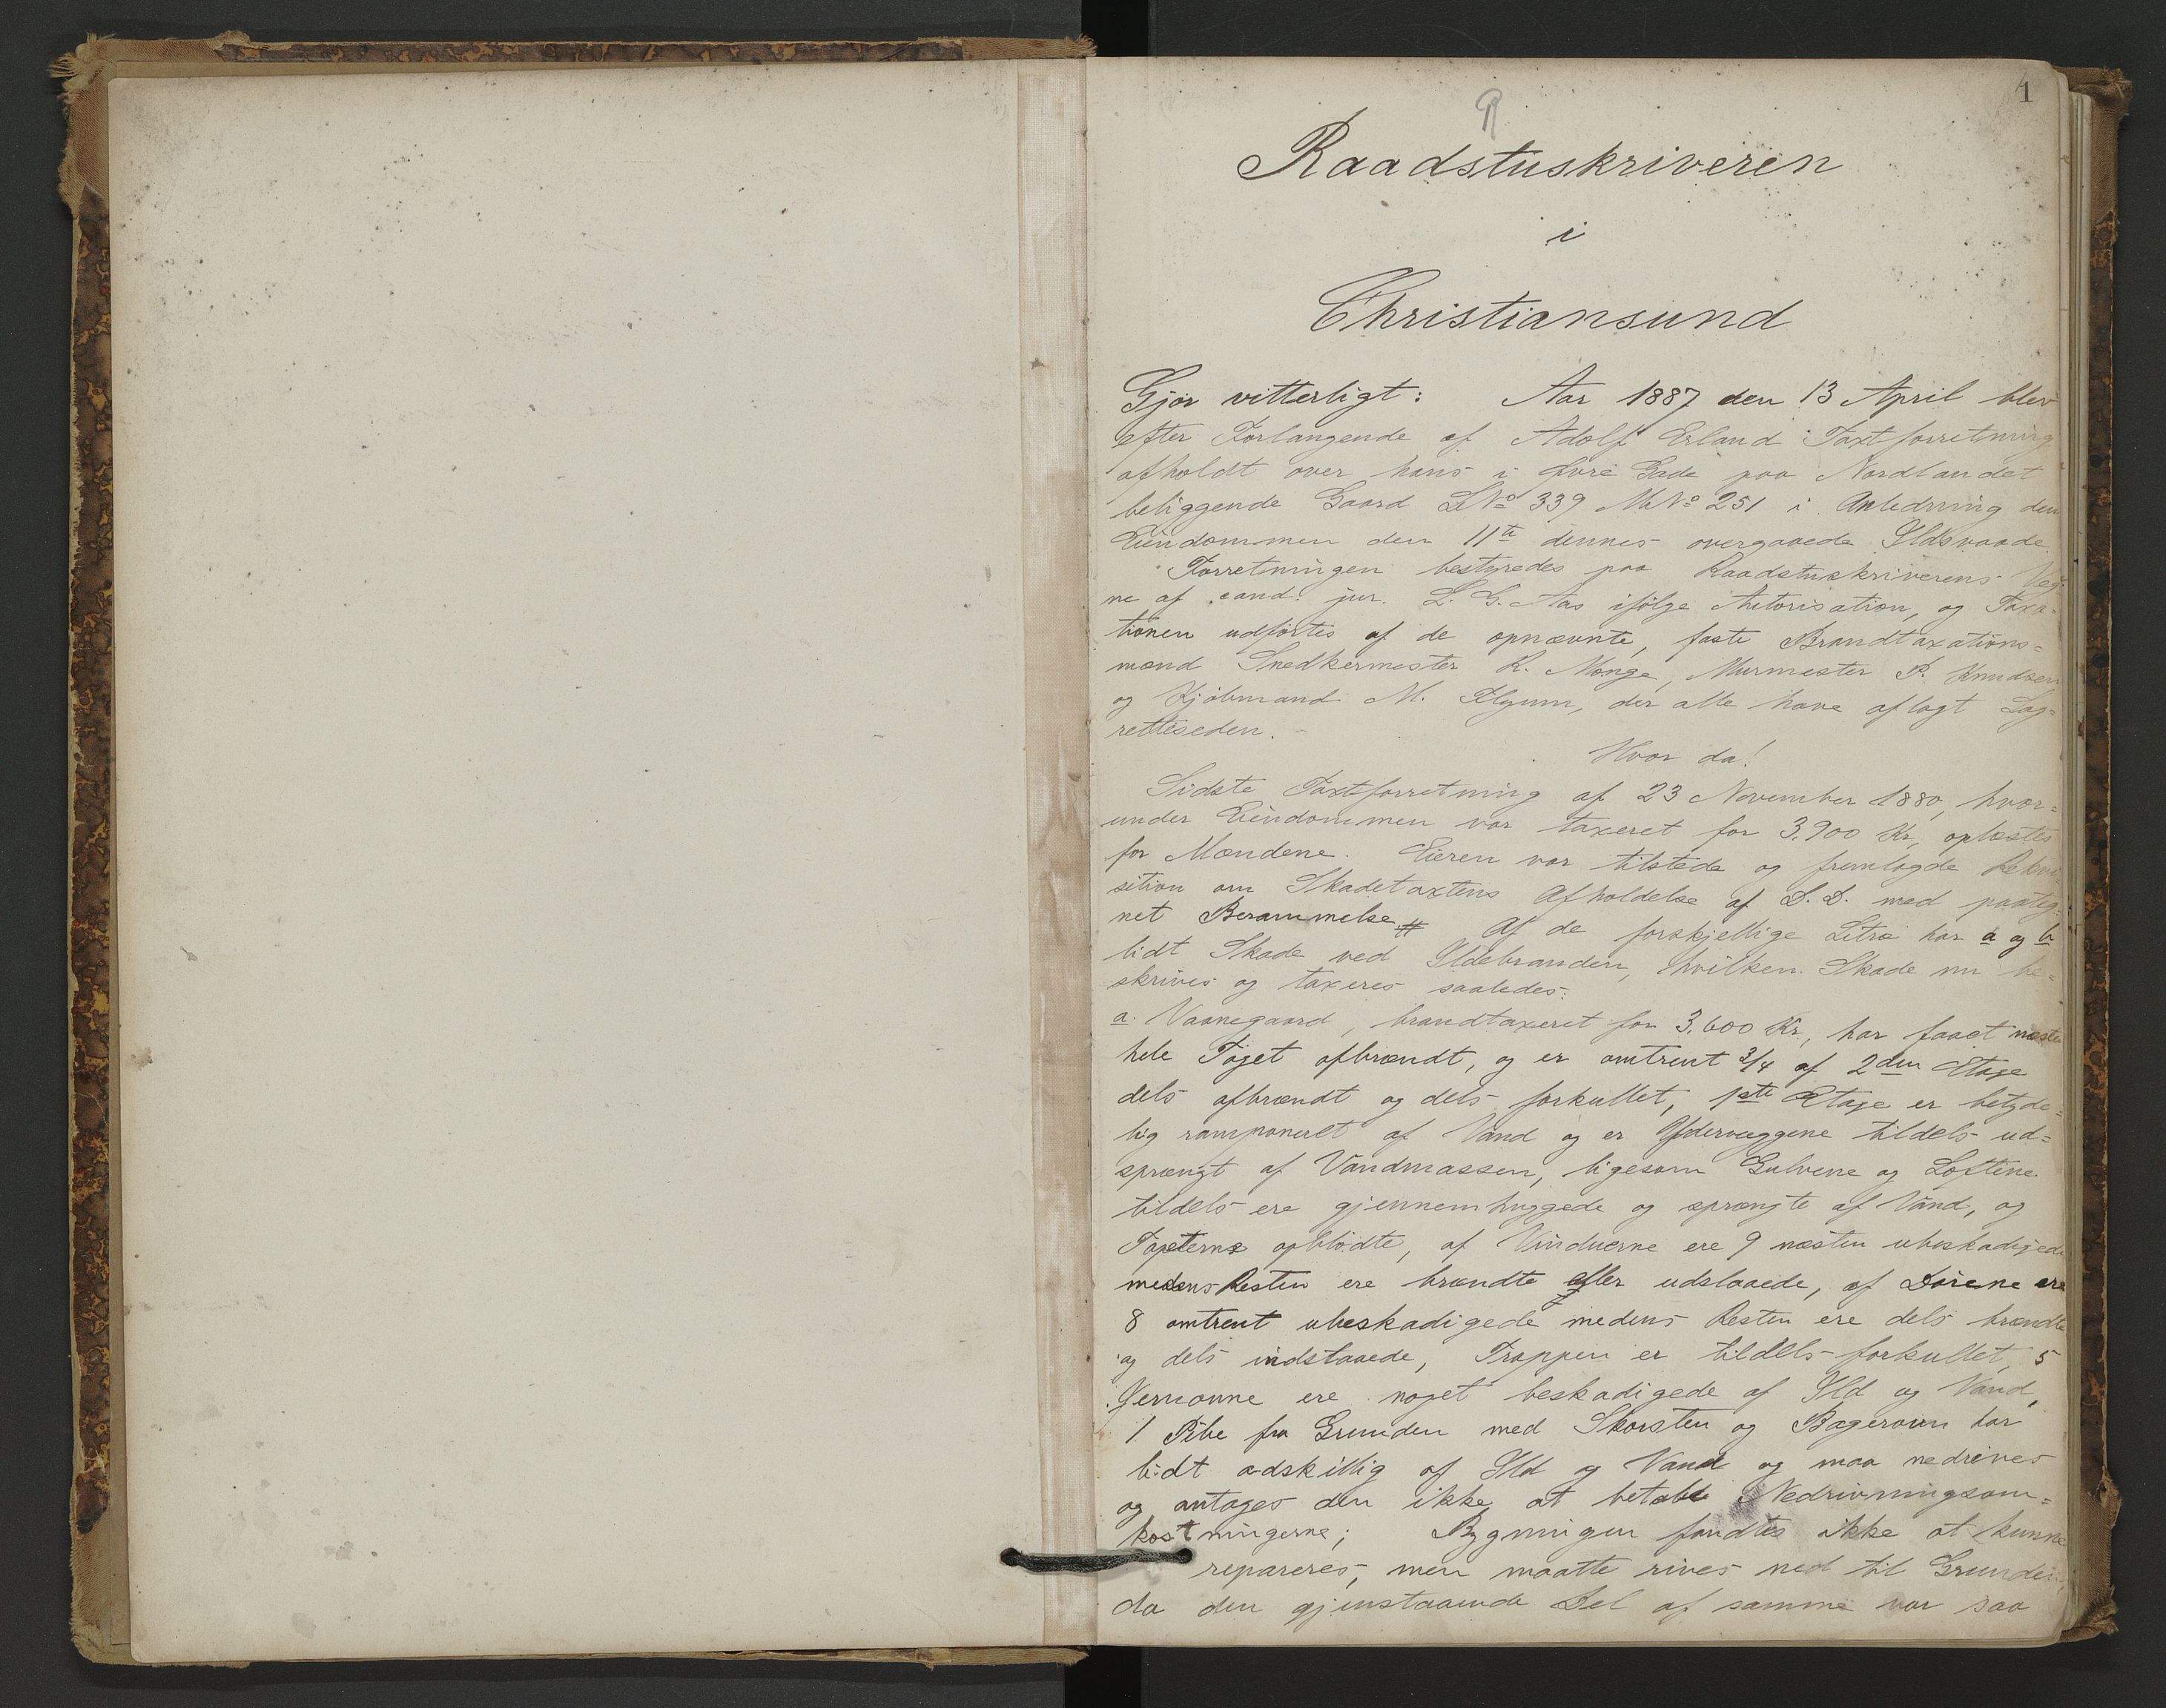 1
Raadstuskriveren
i
Christiansund
Gjør vitterligt: Aar 1887 den 13 April blev
efter Forlangende af Adolf Erland Taxtforretning
afholdt over hans i Øvre Gade paa Nordlandet
beliggende Gaard LNo 339 MNo 251 i Anledning den
Eiendommen den 11te dennes overgaaede Ildsvaade.
Forretningen bestyredes paa Raadstuskriverens Veg=
ne af cand. jur. L. G. Aas ifølge Autorisation, og Taxa=
tionen udførtes af de opnævnte, faste Brandtaxations=
mænd Snedkermester K. Monge, Murmester P. Knudsen
og Kjøbmand M. Flygum, der alle have aflagt Lag=
retteseden.
Hvor da!
Sidste Taxtforretning af 23 November 1880, hvor=
under Eiendommen var taxeret for 3.900 Kr, oplæstes
for Mændene. Eieren var tilstede og fremlagde Rekvi
sition om Skadetaxtens Afholdelse af D.D. med paateg=
net Berammelse # Af de forskjellige Litra har a og b
lidt Skade ved Ildebranden, hvilken Skade nu be=
skrives og taxeres saaledes:
a. Vaanegaard, brandtaxeret for 3.600 Kr., har faaet næsten
hele Taget afbrændt, og er omtrent 3/4 af 2den Etage
dels afbrændt og dels forkullet, 1ste Etage er betyde=
lig ramponeret af Vand og er Ydervæggene tildels ud=
sprængt af Vandmassen, ligesom Gulvene og Loftene
tildels ere gjennemhuggede og sprængte af Vand, og
Tapeterne opblødte, af Vinduerne ere 9 næsten ubeskadigede
medens Resten ere brændte eller udslaaede, af Dørene ere
8 omtrent ubeskadigede medens Resten ere dels brændte
og dels indslaaede, Trappen er tildels forkullet, 5
Jernovne ere noget beskadigede af Ild og Vand,
1 Pibe fra Grunden med Skorsten og Bagerovn har
lidt adskillig af Ild og Vand og maa nedrives
og antages den ikke at betale Nedrivningsom=
kostningerne; Bygningen fandtes ikke at kunne
repareres, men maatte rives ned til Grunden,
da den gjenstaaende Del af samme var saa